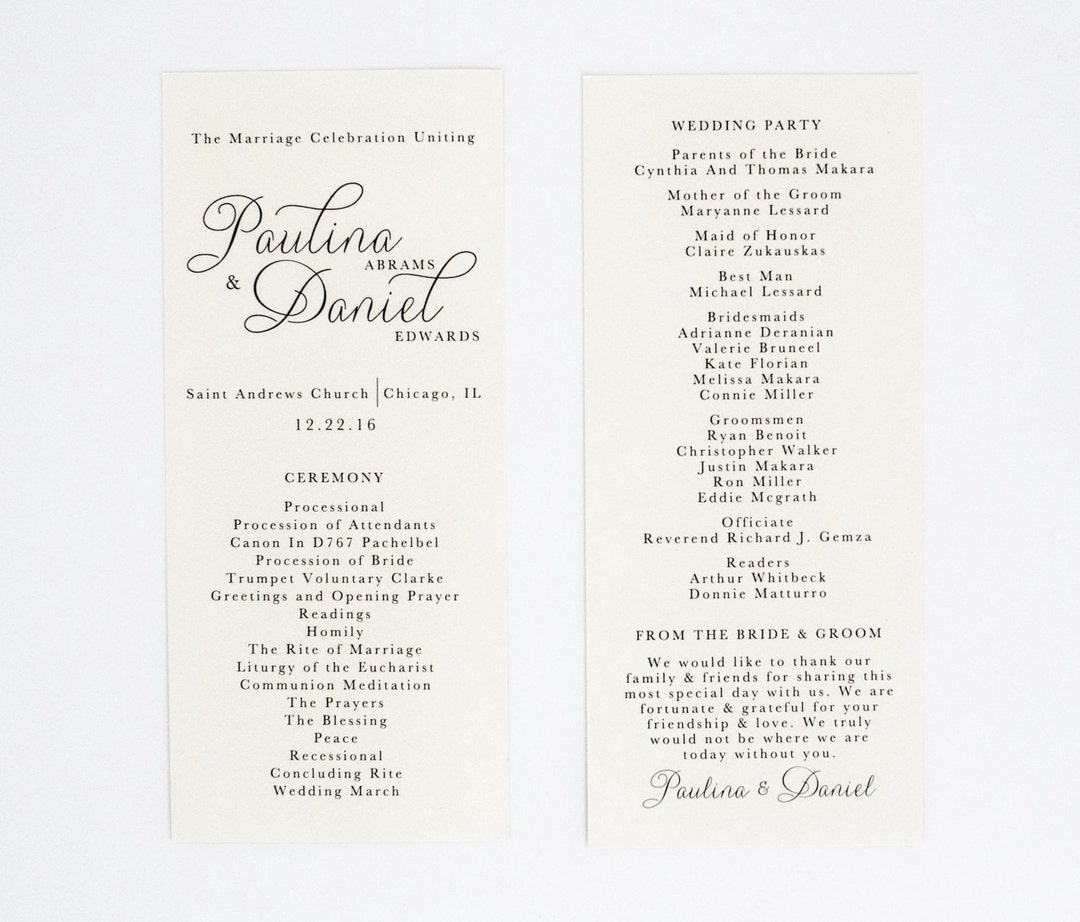 The Marriage Celebration Uniting
Paulina
ABRAMS
& Daniel
EDWARDS
Saint Andrews Church | Chicago, IL
12.22.16
CEREMONY
Processional
Procession of Attendants
Canon In D767 Pachelbel
Procession of Bride
Trumpet Voluntary Clarke
Greetings and Opening Prayer
Readings
Homily
The Rite of Marriage
Liturgy of the Eucharist
Communion Meditation
The Prayers
The Blessing
Peace
Recessional
Concluding Rite
Wedding March
WEDDING PARTY
Parents of the Bride
Cynthia And Thomas Makara
Mother of the Groom
Maryanne Lessard
Maid of Honor
Claire Zukauskas
Best Man
Michael Lessard
Bridesmaids
Adrianne Deranian
Valerie Bruneel
Kate Florian
Melissa Makara
Connie Miller
Groomsmen
Ryan Benoit
Christopher Walker
Justin Makara
Ron Miller
Eddie Mcgrath
Officiate
Reverend Richard J. Gemza
Readers
Arthur Whitbeck
Donnie Matturro
FROM THE BRIDE & GROOM
We would like to thank our
family & friends for sharing this
most special day with us. We are
fortunate & grateful for your
friendship & love. We truly
would not be where we are
today without you.
Paulina & Daniel